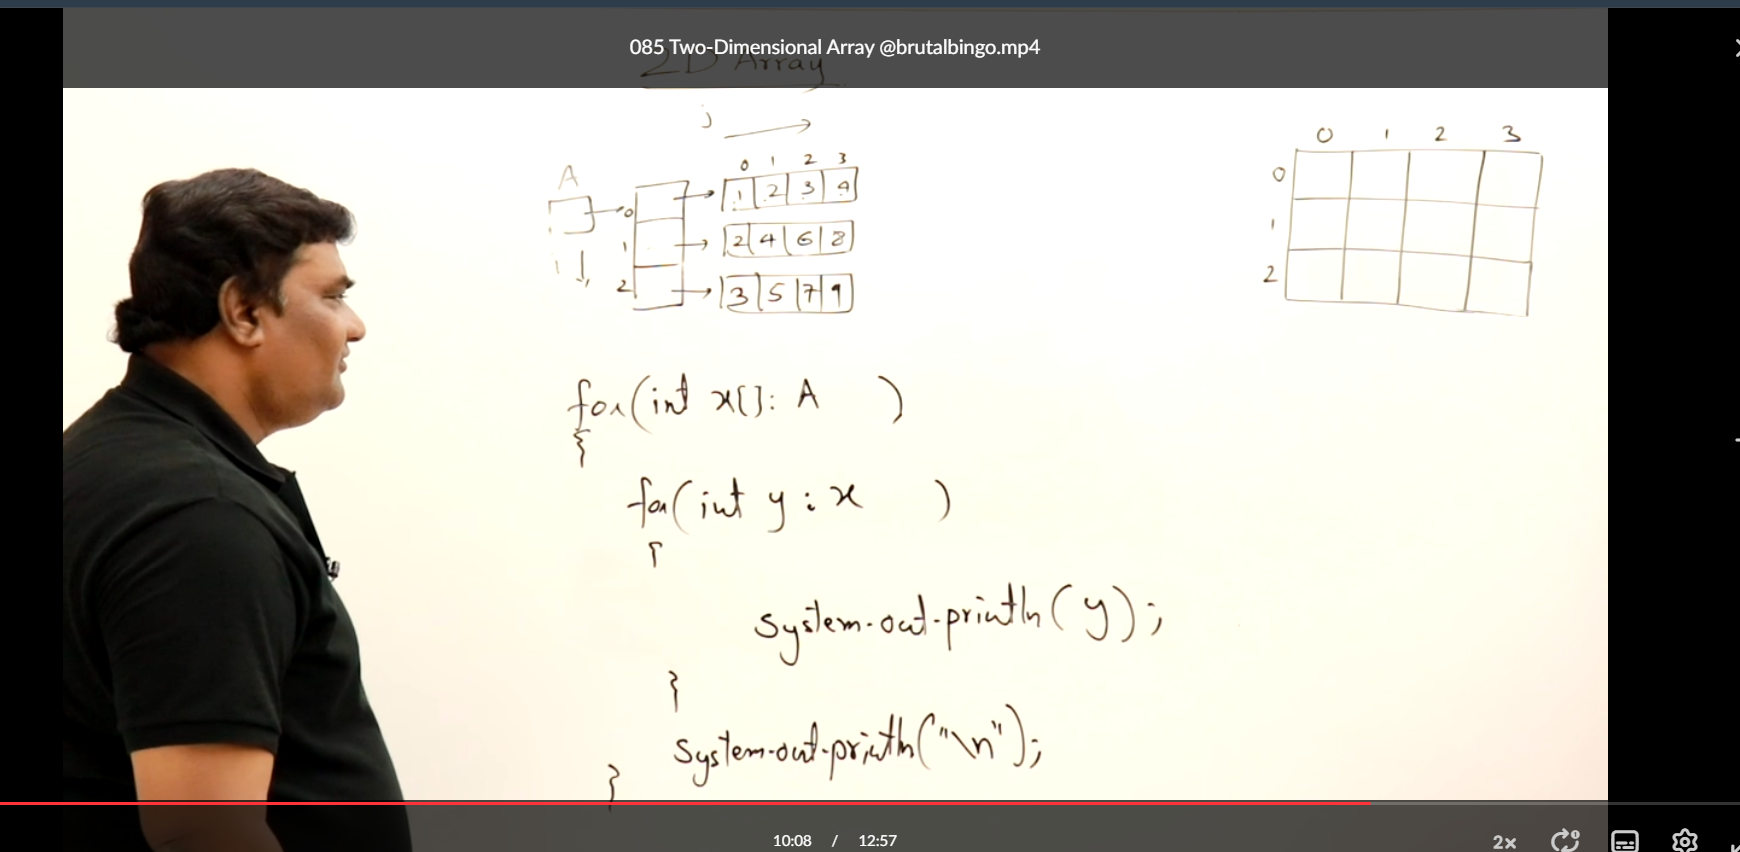 085 Two-Dimensional Array @brutalbingo.mp4
2D Array
j
A
0 1 2 3
0
1 2 3 9
1
2 4 6 8
i
2
3 5 7 9
0 1 2 3
0
1
2
for(int x[]: A )
{
for(int y : x )
{
System.out.println(y);
}
System.out.println("\n");
}
10:08 / 12:57
2x